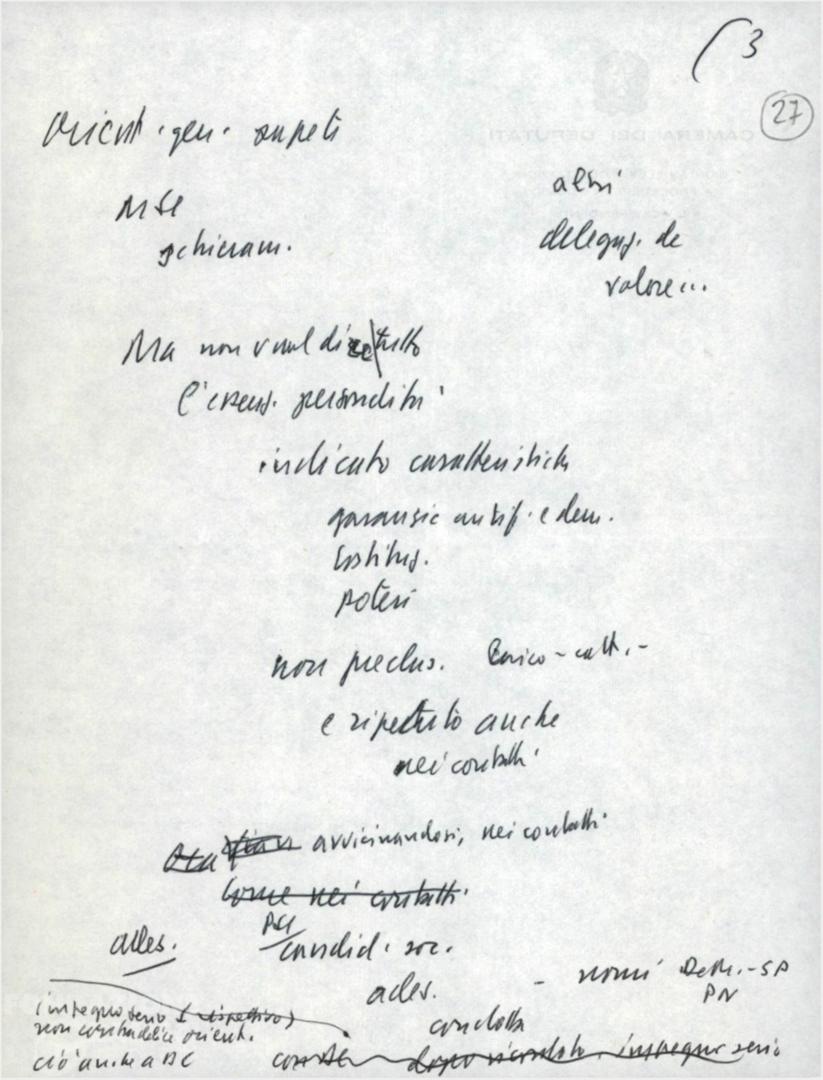 3
27
Orient. gen. ripeti
altri
schieram.
deleguz. de
valore...
Ma non vuol dire tutto
l'essenz. personalità
indicato caratteristiche
garanzie antif. e dem.
Costituz.
poteri
non preclus. laico - catt. -
e ripetuto anche
nei contatti
Ora avvicinandosi, nei contatti
Come nei contatti
PSI
ades. candid. soc.
ades. - nomi DeM. - SP
PN
impegno serio (rispettivo)
condotta
non contraddice orient.
ciò anche a DC dopo ricordato impegno serio